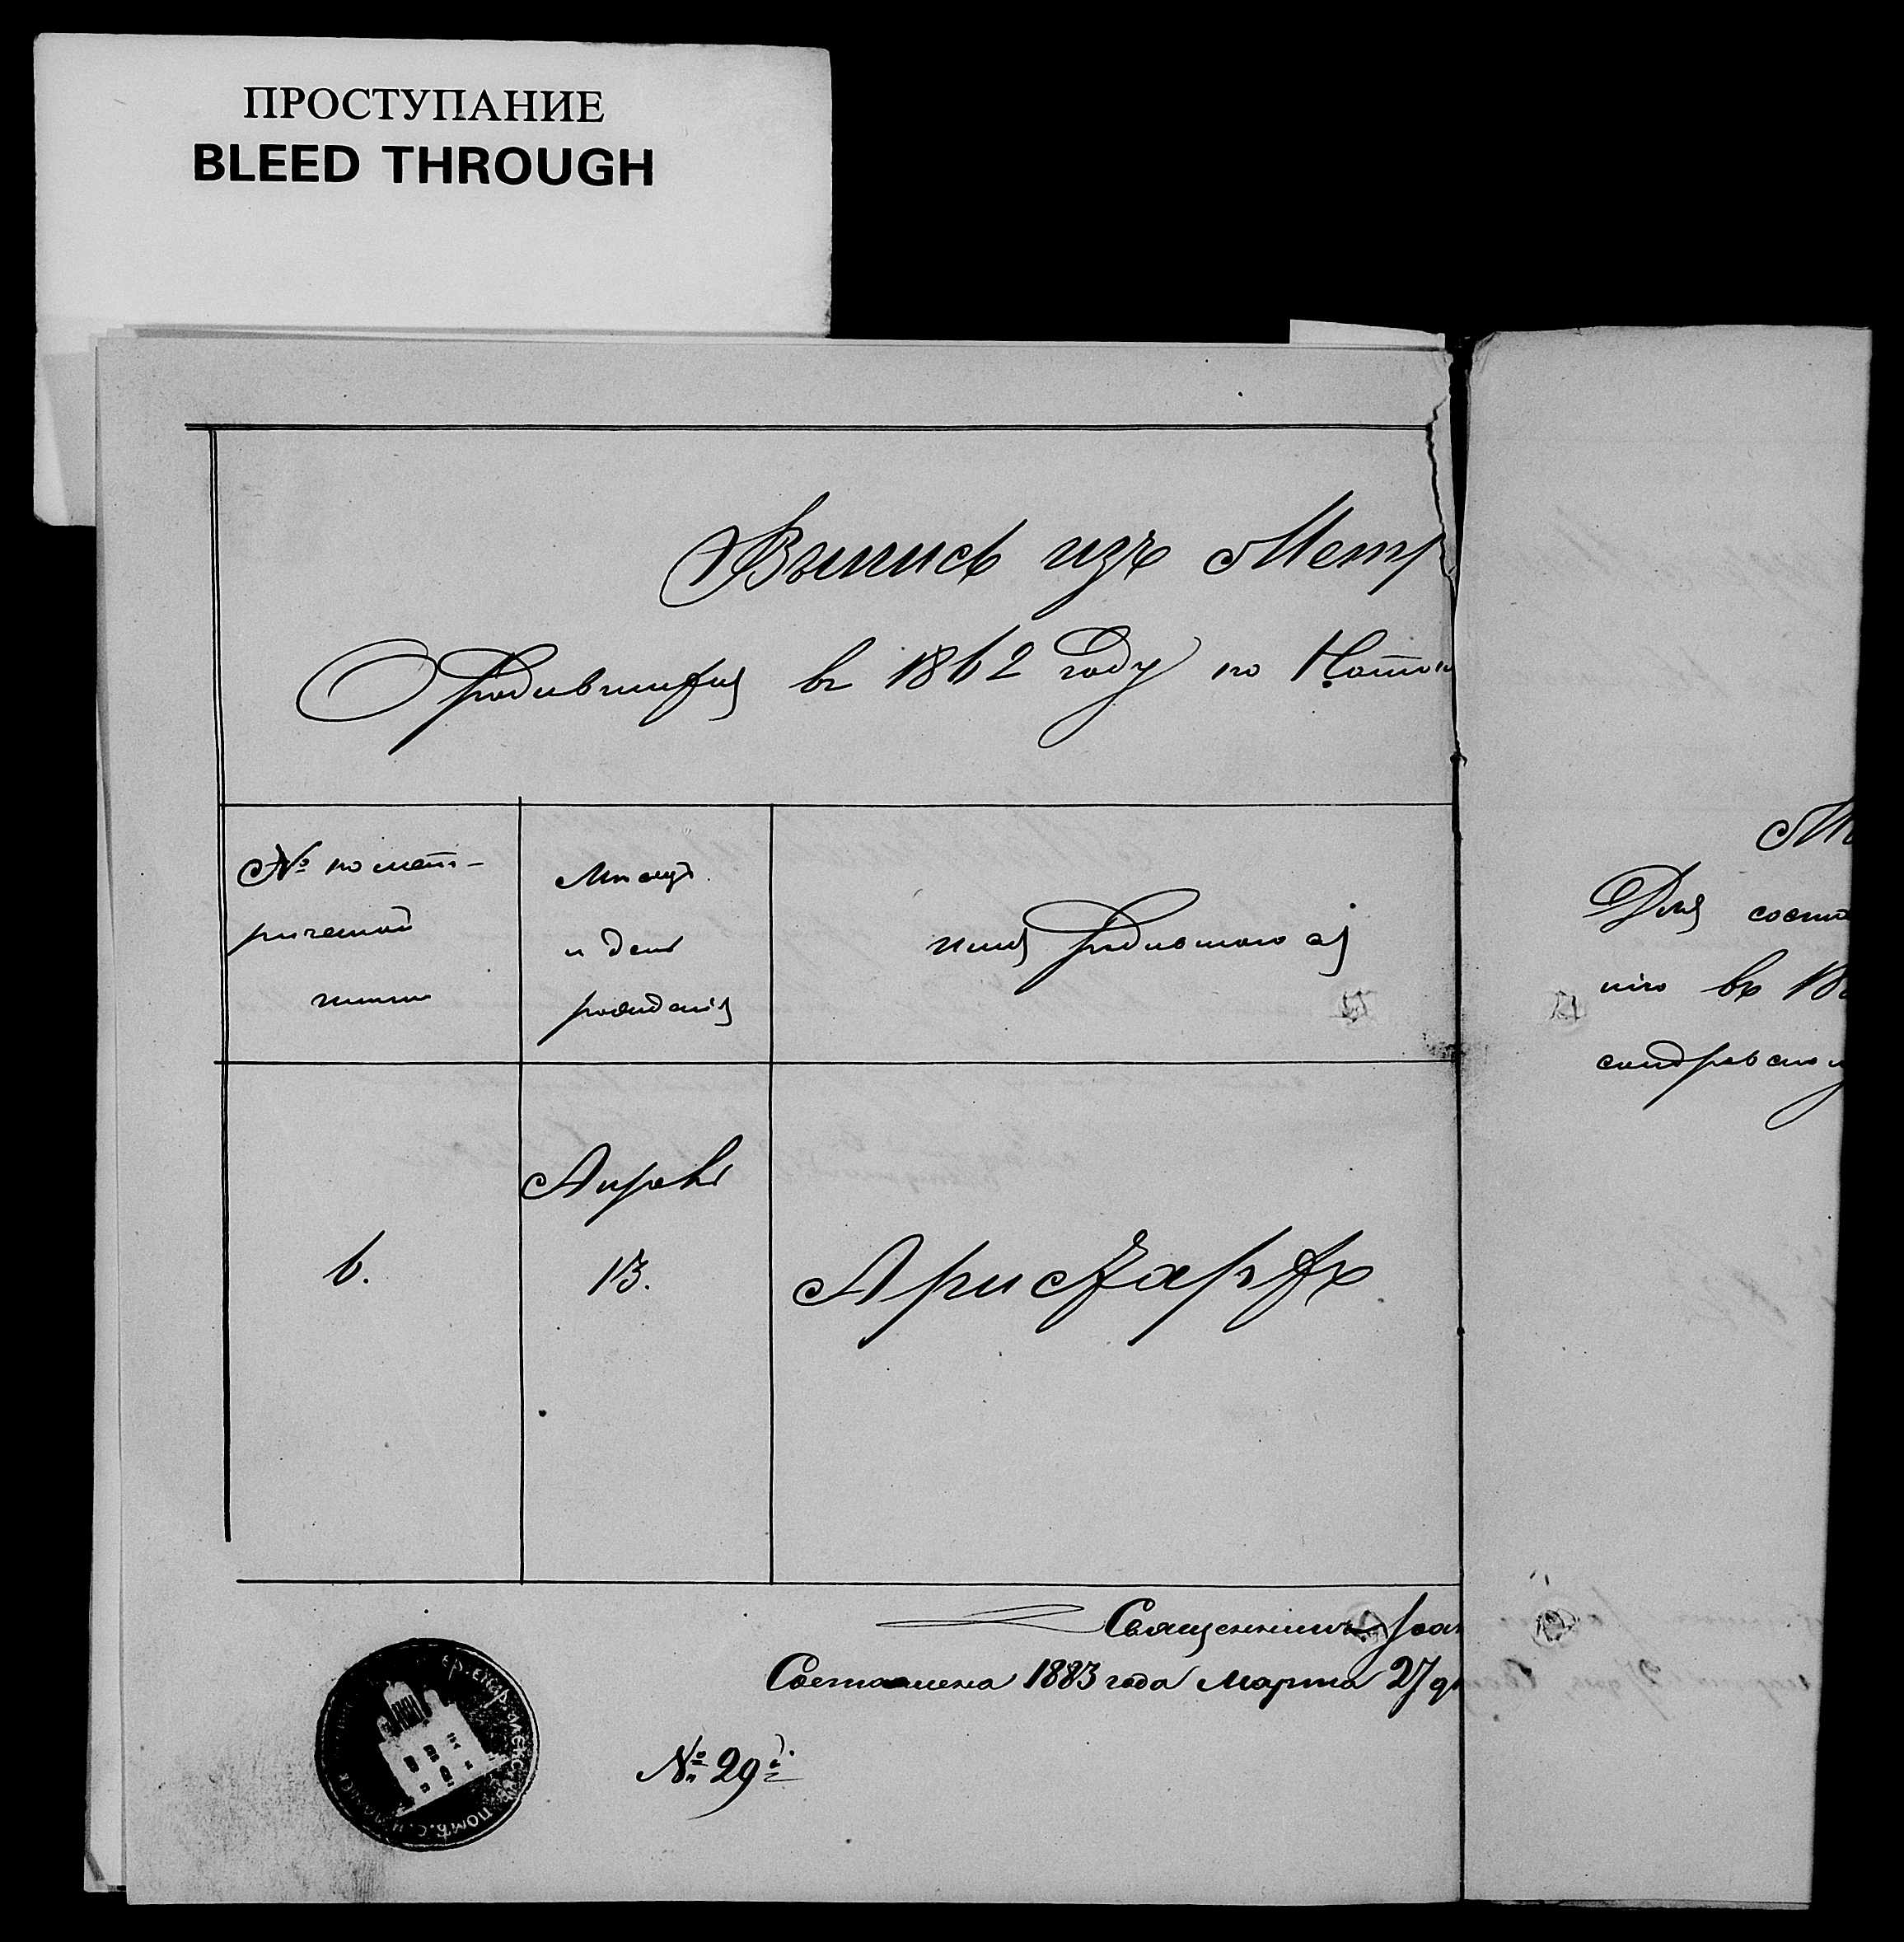 ПРОСТУПАНИЕ
BLEED THROUGH
Выпись изъ Метр
родившихся въ 1862 году по
№ по мет-
рической
книги
Мѣсяцъ
и день
рожденія
имя родившагося
6.
Апрѣль
13.
Аристархъ
Священникъ Іоан
Составлена 1883 года Марта 27 дн
№ 29й
Для соста
въ
сандровско